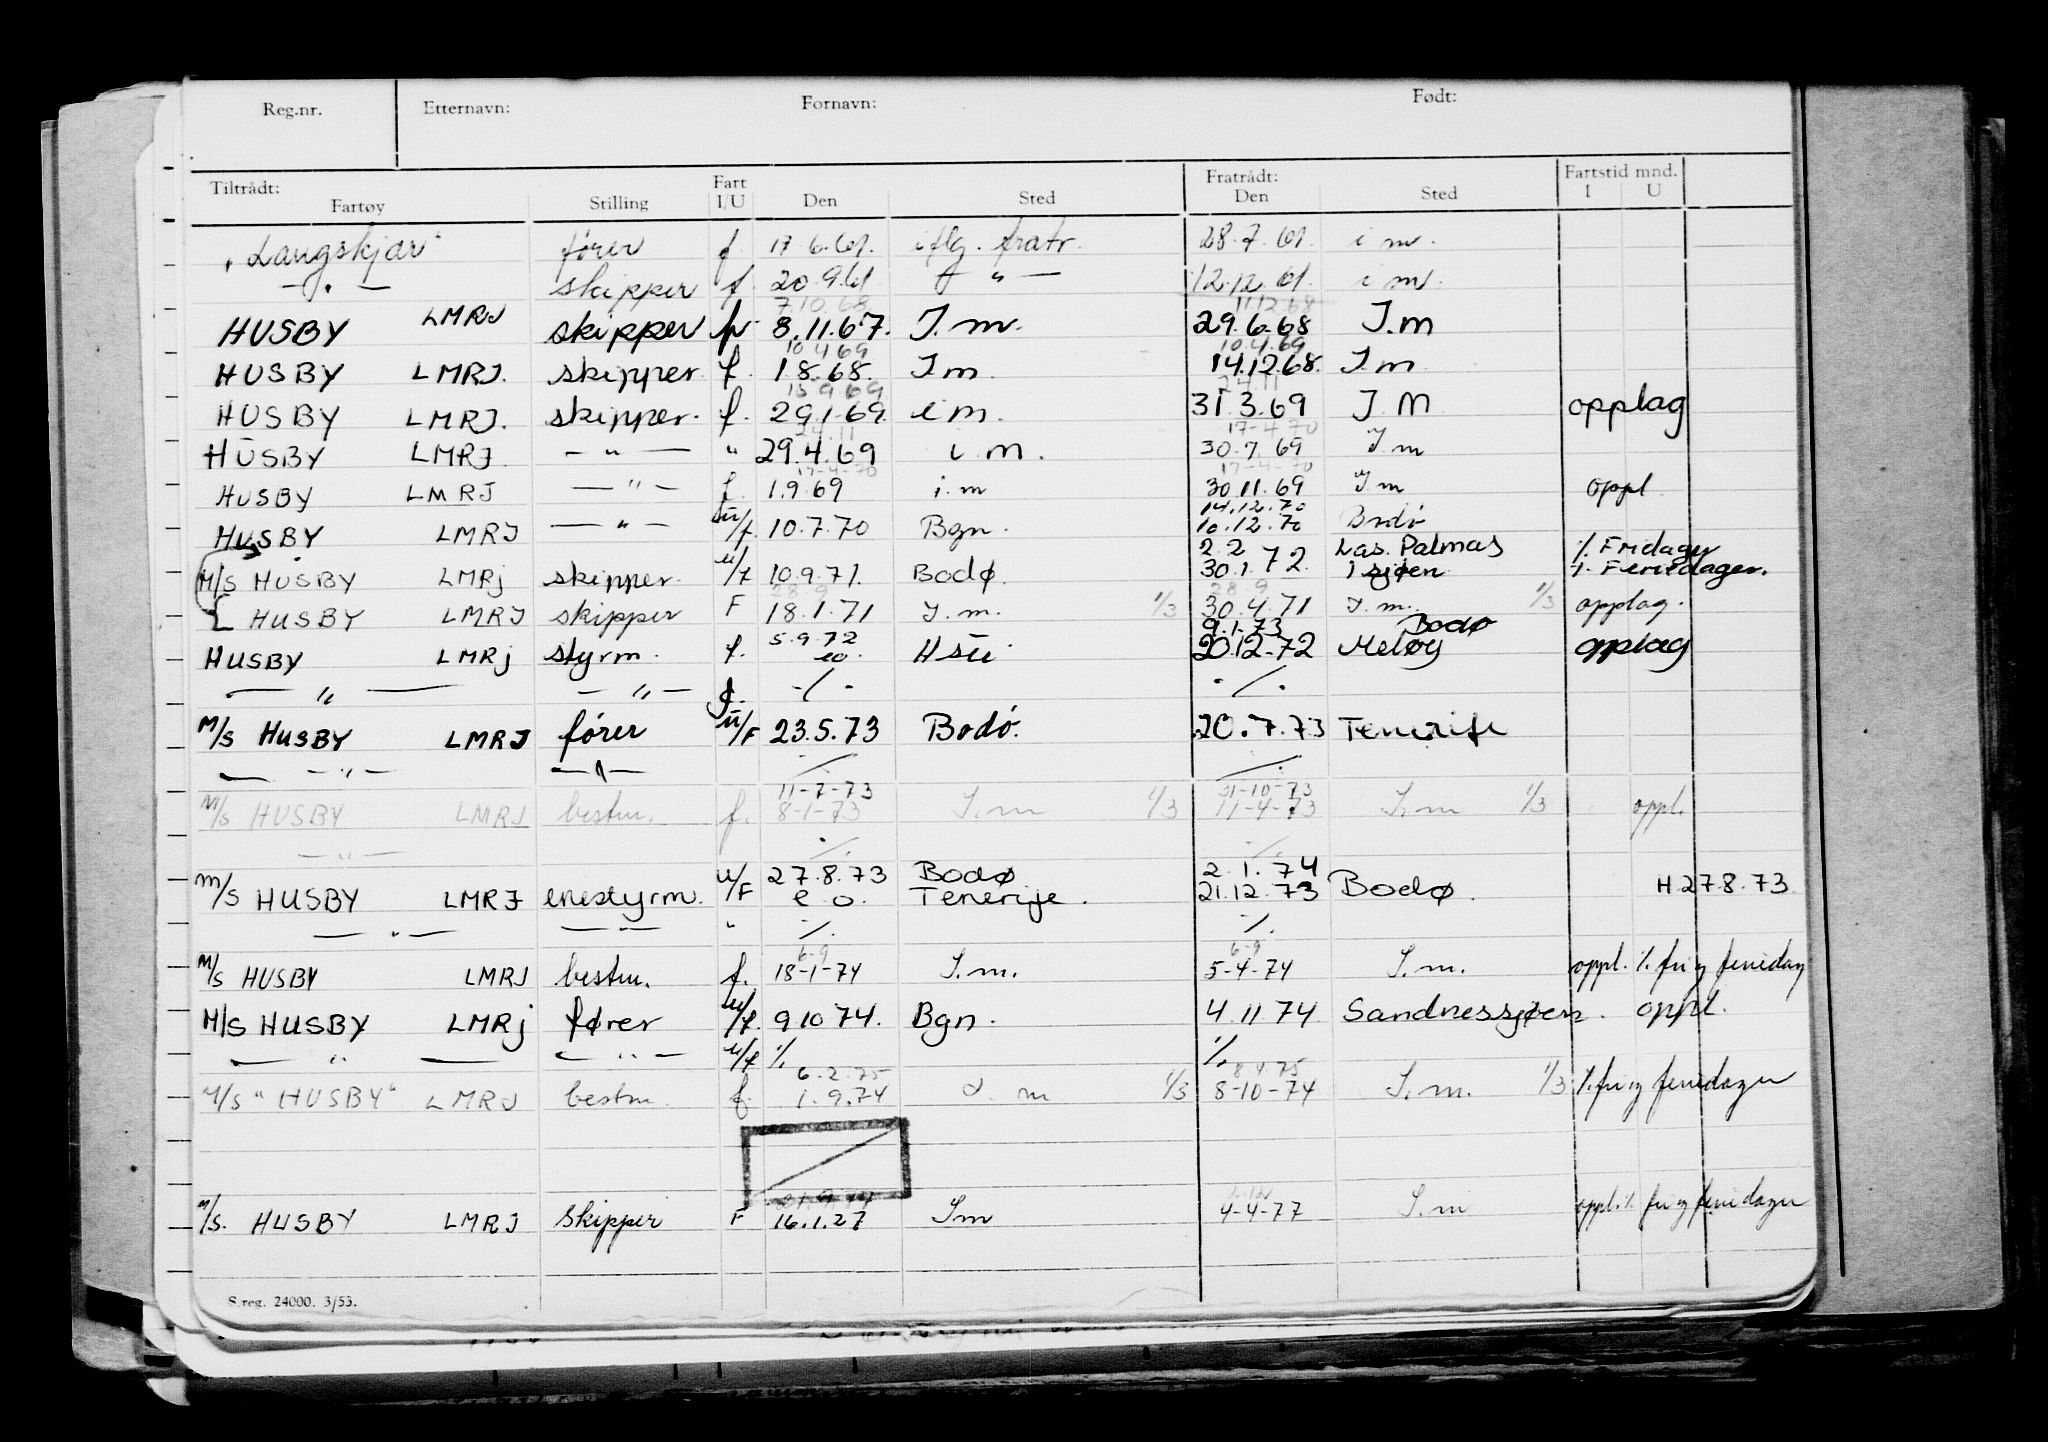 Reg.nr. Etternavn: Fornavn: Født:
Tiltrådt: Fart Fratrådt: Fartstid mnd.
Fartøy Stilling I/U Den Sted Den Sted I U
"Langskjær" fører f. 17.6.61. iflg. fratr. 28.7.61. i m.
— " — skipper f. 20.9.61 — " — 12.12.61. i m.
7.10.68 11.12.68
HUSBY LMRJ skipper f. 8.11.67. I.m. 29.6.68 I.m
10.4.69 10.4.69
HUSBY LMRJ. skipper f. 1.8.68. I m. 14.12.68. I.m
15.9.69 24.11
HUSBY LMRJ. skipper. f. 29.1.69. i m. 31.3.69 I.M opplag
24.11 17-4-70
HUSBY LMRJ — " — " 29.4.69 i.m. 30.7.69 I m
17-4-70 17-4-70
HUSBY LMRJ — " — f. 1.9.69 i.m 30.11.69 I m oppl.
14.12.70
HUSBY LMRJ — " — u/f. 10.7.70 Bgn. 10.12.70 Bodø
2.2 Las. Palmas %. Fridager
M/S HUSBY LMRJ skipper. u/f 10.9.71. Bodø. 30.1.72. I sjøen %. Feriedager.
28.9 28.9
HUSBY LMRJ skipper F 18.1.71 I.m. 1/3 30.4.71 I.m. 1/3 opplag.
5.9.72 9.1.73 Bodø
HUSBY LMRJ styrm. f. eo. Hsü 20.12.72 Meløy opplag
— " — — " — f. ./. ./.
M/S HUSBY LMRJ fører u/F 23.5.73 Bodø. 20.7.73 Tenerife
— " — — " — ./. ./.
11-7-73 31-10-73
M/S HUSBY LMRJ bestm. f. 8-1-73 I.m 1/3 11-4-73 I.m 1/3 oppl.
— " — ./. ./.
27.8.73 Bodø 2.1.74
M/S HUSBY LMRJ enestyrm. u/F e o. Tenerife. 21.12.73 Bodø. H.27.8.73
— " — — " — " ./. ./.
6-9 6-9
M/S HUSBY LMRJ bestm. f. 18-1-74 I.m. 5-4-74 I.m. oppl. %. fri og feriedag
M/S HUSBY LMRJ fører u/f. 9.10.74. Bgn. 4.11.74 Sandnessjøen. oppl.
— " — — " — u/f %. %.
6.2.75 8.4.75
M/S "HUSBY" LMRJ bestm. f. 1.9.74 I. m 1/3 8-10-74 I.m. 1/3 %. fri og feriedager
M/S. HUSBY LMRJ Skipper F 16.1.27 Im 4-4-77 I.m oppl. %. fri og feriedager
S.reg. 24000. 3/53.